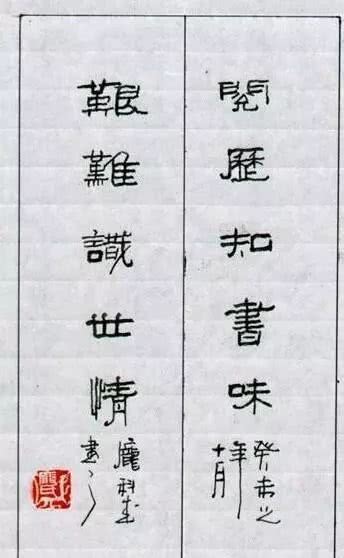 閱歷知書味
癸未之
年
十月
艱難識世情
書